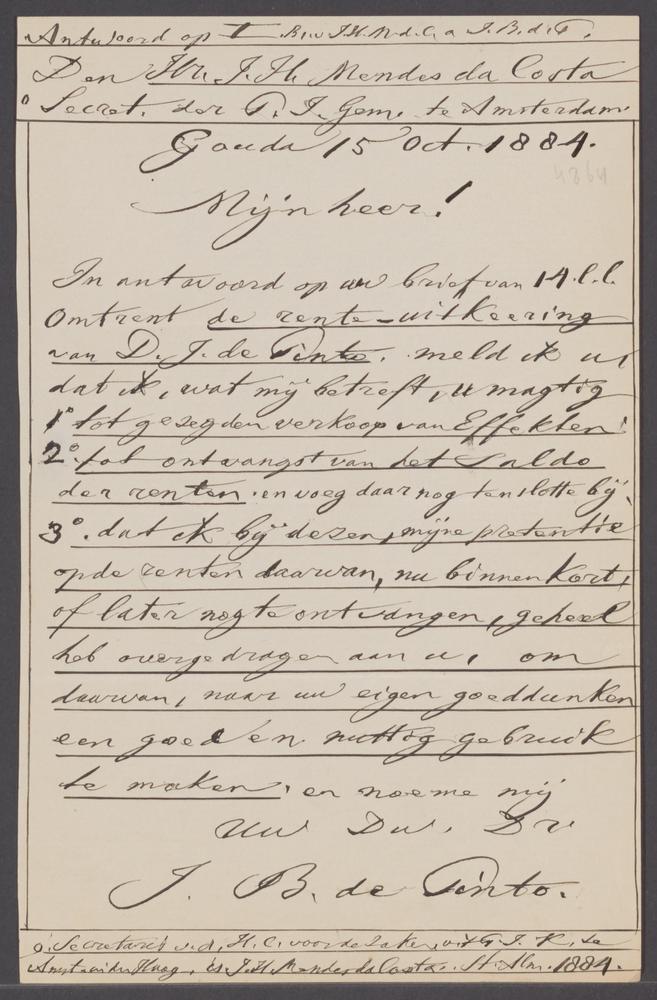 Antwoord op I. Br. v. J.H. M. d. C. a J. B. d. P.
Den Hr. J. H. Mendes da Costa
Secret. der P. I. Gem. te Amsterdam.
Gouda 15 Oct. 1884.
4864
Mijn heer!
In antwoord op uw brief van 14. l.l.
omtrent de rente-uitkeering
van D. J. de Pinto. meld ik u,
dat ik, wat mij betreft, u magtig
1° tot gezegden verkoop van Effekten;
2° tot ontvangst van het saldo
der renten. en voeg daar nog ten slotte bij,
3°. dat ik bij dezen, mijne pretentie
op de renten daarvan, nu binnen kort,
of later nog te ontvangen, geheel
heb overgedragen aan u, om
daarvan, naar uw eigen goeddunken
een goed en nuttig gebruik
te maken, en noeme mij
Uw Dw. Dr
J. B. de Pinto.
o. Secretaris v. d. H. C. voor de Zaken, v. h. I. K. te
Amst. in den Haag, is J. H. Mendes da Costa. St. Alm. 1884.